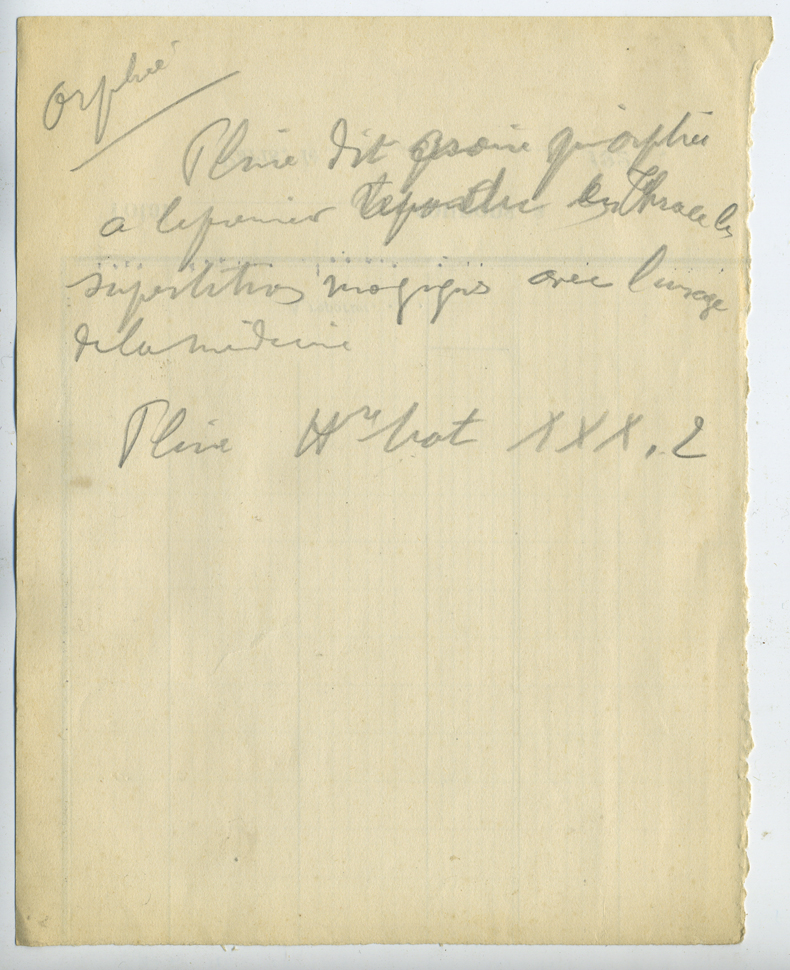 Orphée
Pline dit qu'orphée
a le premier répandu en Thrace les
superstitions magiques avec l'usage
de la médecine
Pline Hre nat XXX. 2